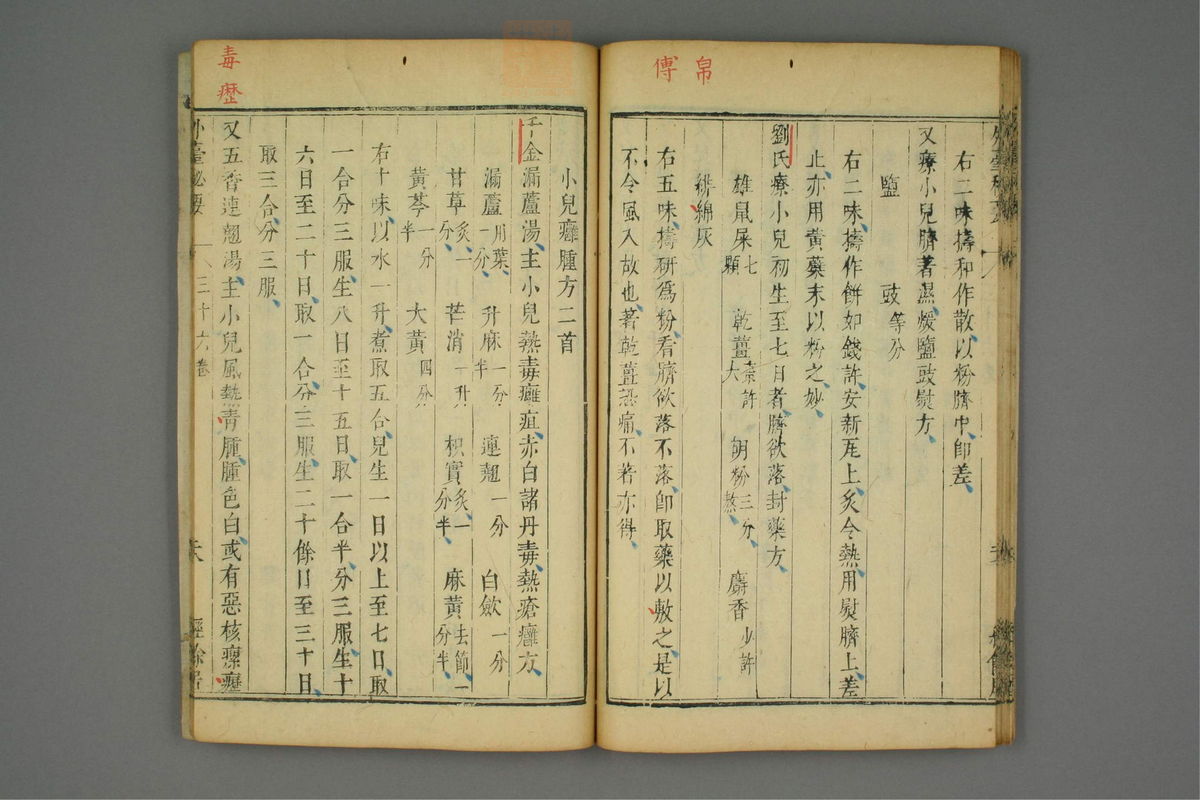 帛
傅
右二味擣和作散以粉臍中即差
又療小兒臍著濕煖鹽豉熨方
鹽 豉等分
右二味擣作餅如錢許安新瓦上炙令熱用熨臍上差
止亦用黃蘗末以粉之妙
劉氏療小兒初生至七日者臍欲落封藥方
雄鼠屎七顆 乾薑棗許大 胡粉三分熬 麝香少許
緋綿灰
右五味擣研為粉看臍欲落不落即取藥以敷之是以
不令風入故也著乾薑恐痛不著亦得
毒
瘗
小兒癰腫方二首
千金漏蘆湯主小兒熱毒癰疽赤白諸丹毒熱瘡癤方
漏蘆用葉一分 升麻一分半 連翹一分 白斂一分
甘草炙一分 芒消一升 枳實炙一分半 麻黃去節一分半
黃芩一分半 大黃四分
右十味以水一升煮取五合兒生一日以上至七日取
一合分三服生八日至十五日取一合半分三服生十
六日至二十日取二合分三服生二十餘日至三十日
取三合分三服
又五香連翹湯主小兒風熱青腫腫色白或有惡核瘰癧
外臺秘要 三十六卷 經餘居